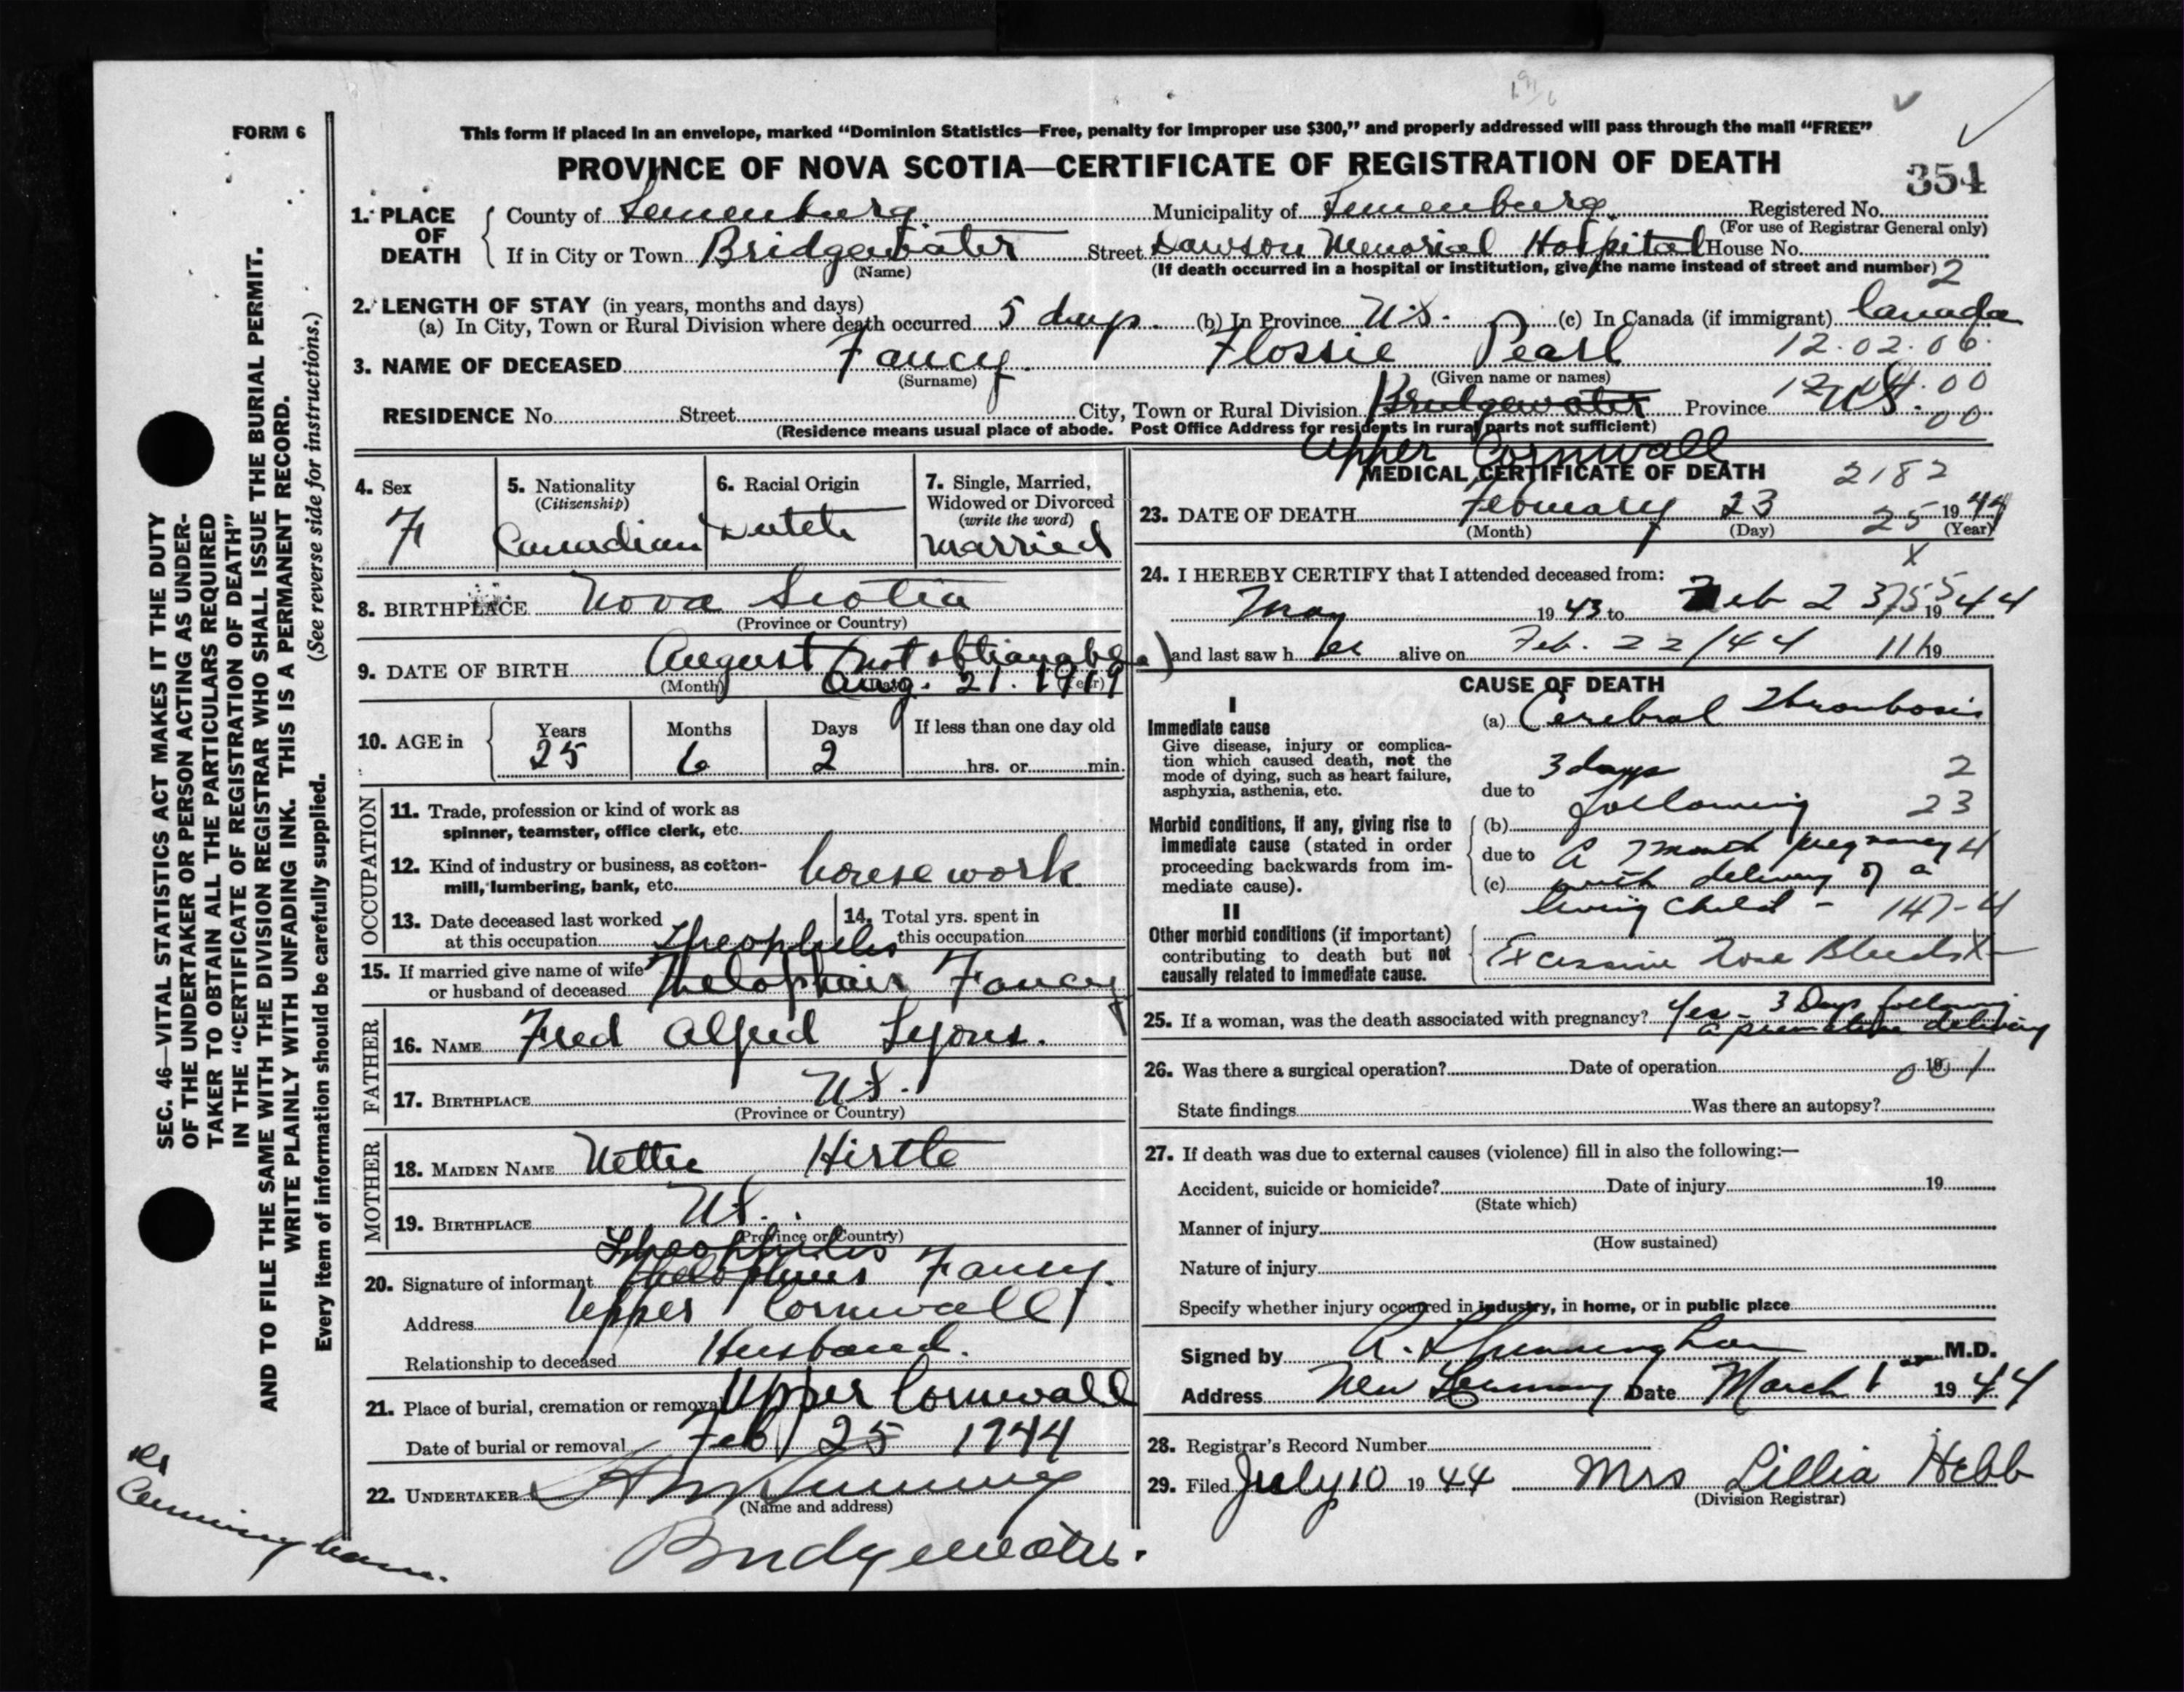 FORM 6
This form if placed in an envelope, marked “Dominion Statistics—Free, penalty for improper use $300,” and properly addressed will pass through the mail “FREE”
PROVINCE OF NOVA SCOTIA—CERTIFICATE OF REGISTRATION OF DEATH
354
1. PLACE OF DEATH
County of Lunenburg Municipality of Lunenburg Registered No.
(For use of Registrar General only)
If in City or Town Bridgewater Street Dawson Memorial Hospital House No.
(Name) (If death occurred in a hospital or institution, give the name instead of street and number) 2
2. LENGTH OF STAY (in years, months and days)
(a) In City, Town or Rural Division where death occurred 5 days. (b) In Province N.S. (c) In Canada (if immigrant) Canada
3. NAME OF DECEASED Fancy. Flossie Pearl 12.02.06.
(Surname) (Given name or names)
RESIDENCE No. Street City, Town or Rural Division Bridgewater Province N.S. 00
(Residence means usual place of abode. Post Office Address for residents in rural parts not sufficient) 00
Upper Cornwall
4. Sex
F
5. Nationality
(Citizenship)
Canadian
6. Racial Origin
Dutch
7. Single, Married,
Widowed or Divorced
(write the word)
Married
8. BIRTHPLACE Nova Scotia
(Province or Country)
9. DATE OF BIRTH August (not obtianable)
(Month) Aug. 21. 1919
10. AGE in
Years 25
Months 6
Days 2
If less than one day old
hrs. or min.
OCCUPATION
11. Trade, profession or kind of work as
spinner, teamster, office clerk, etc.
12. Kind of industry or business, as cotton-
mill, lumbering, bank, etc. housework
13. Date deceased last worked
at this occupation
14. Total yrs. spent in
this occupation
Theophilis
15. If married give name of wife
or husband of deceased Fancy
FATHER
16. NAME Fred Alfred Lyons.
17. BIRTHPLACE N.S.
(Province or Country)
MOTHER
18. MAIDEN NAME Nettie Hirtle
19. BIRTHPLACE N.S.
(Province or Country)
Theophilis
20. Signature of informant Fancy.
Address Upper Cornwall
Relationship to deceased Husband.
21. Place of burial, cremation or removal Upper Cornwall
Date of burial or removal Feb 25 1944
22. UNDERTAKER
(Name and address)
Bridgewater.
MEDICAL CERTIFICATE OF DEATH 2182
23. DATE OF DEATH February 23 25 1944
(Month) (Day) (Year)
X
24. I HEREBY CERTIFY that I attended deceased from:
May 1943 to Feb 23 1944
and last saw her alive on Feb. 22/44 19
CAUSE OF DEATH
I
Immediate cause
Give disease, injury or complica-
tion which caused death, not the
mode of dying, such as heart failure,
asphyxia, asthenia, etc.
(a) Cerebral Thrombosis
3 days 2
due to
(b) following 23
Morbid conditions, if any, giving rise to
immediate cause (stated in order
proceeding backwards from im-
mediate cause).
due to a 7 month pregnancy 4
(c) with delivery of a
living child - 147-4
II
Other morbid conditions (if important)
contributing to death but not
causally related to immediate cause.
Excessive Nose Bleeds X
25. If a woman, was the death associated with pregnancy? Yes - 3 Days following
a premature delivery
26. Was there a surgical operation? Date of operation 19 001
State findings Was there an autopsy?
27. If death was due to external causes (violence) fill in also the following:—
Accident, suicide or homicide? Date of injury 19
(State which)
Manner of injury
(How sustained)
Nature of injury
Specify whether injury occurred in industry, in home, or in public place
Signed by M.D.
Address New Germany Date March 1st 1944
28. Registrar's Record Number
29. Filed July 10 1944 Mrs Lillia Hebb
(Division Registrar)
SEC. 46—VITAL STATISTICS ACT MAKES IT THE DUTY
OF THE UNDERTAKER OR PERSON ACTING AS UNDER-
TAKER TO OBTAIN ALL THE PARTICULARS REQUIRED
IN THE “CERTIFICATE OF REGISTRATION OF DEATH”
AND TO FILE THE SAME WITH THE DIVISION REGISTRAR WHO SHALL ISSUE THE BURIAL PERMIT.
WRITE PLAINLY WITH UNFADING INK. THIS IS A PERMANENT RECORD.
Every item of information should be carefully supplied. (See reverse side for instructions.)
Dr
Cunningham.